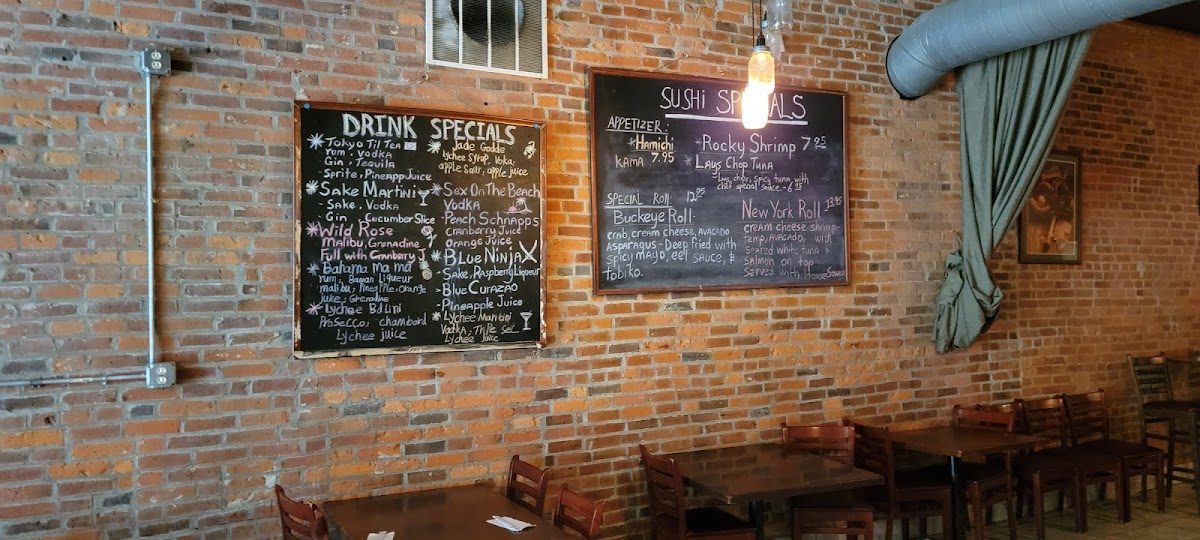 DRINK SPECIALS
Tokyo Til Tea
rum, vodka
Gin, Tequila
Sprite, Pineapp Juice
Sake Martini
- Sake, Vodka
Gin, Cucumber Slice
Wild Rose
Malibu, Grenadine
Full with Cranberry J
Bahama mama
rum, Banan Liqueur
malibu, Pineapple-orange
juke, Grenadine
Lychee Bellini
Prosecco, chambord
Lychee juice
Jade Godde
lychee syrup, Voka,
apple sour, apple juice
Sex On The Beach
Vodka
Peach Schnapps
Cranberry Juice
Orange Juice
Blue Ninja
- Sake, Raspberry Liqueur
- Blue Curazao
- Pineapple Juice
Lychee Mantini
Vodka, Triple Sec
Lychee Juice
SUSHI SPECIALS
APPETIZER:
Hamichi
KAMA 7.95
Rocky Shrimp 7.95
Lays Chop Tuna
- Lays chips, spicy tuna, with
chef special sauce - 6.95
SPECIAL Roll: 12.95
Buckeye Roll
crab, cream cheese, avacado
Asparagus - Deep fried with
spicy mayo, eel sauce, &
Tobiko.
New York Roll 13.95
cream cheese shrimp-
temp, Avocado, with
seared white tuna &
salmon on top
Served with House Sauce